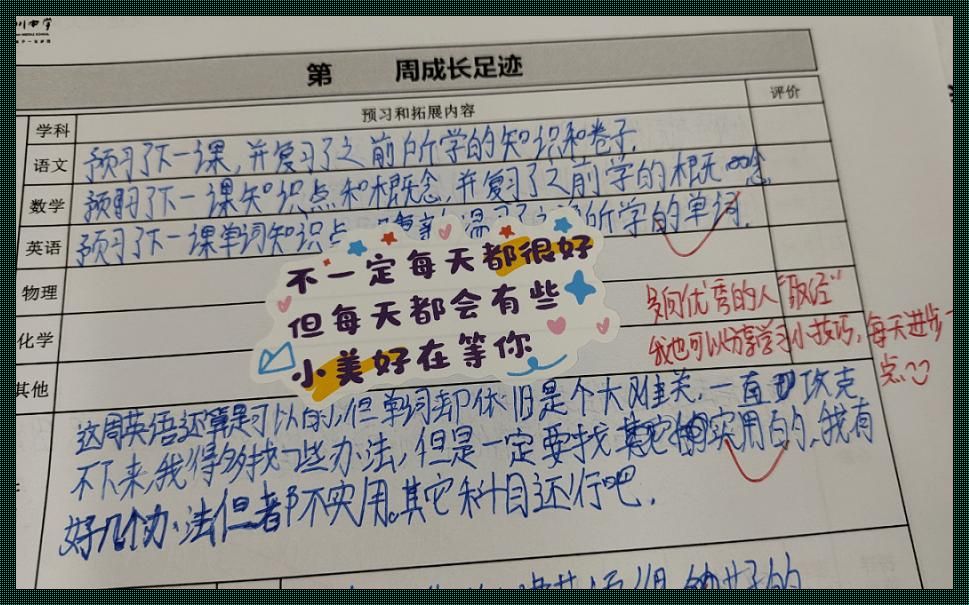 第 周成长足迹
学科 预习和拓展内容 评价
语文 预习了下一课,并复习了之前所学的知识和卷子.
数学 预习了下一课知识点和概念,并复习了之前学的概念
英语 预习了下一课单词知识点 所学的单词.
物理
化学
其他
不一定每天都很好
但每天都会有些
小美好在等你
多向优秀的人“取经”
我也可以分享学习小技巧,每天进步一
点
这周英语还算是可以的,但单词却依旧是个大难关,一直攻克
不下来,我得多找一些办法,但是一定要找其它的实用的,我有
好几个办法但都不实用。其它科目还行吧.